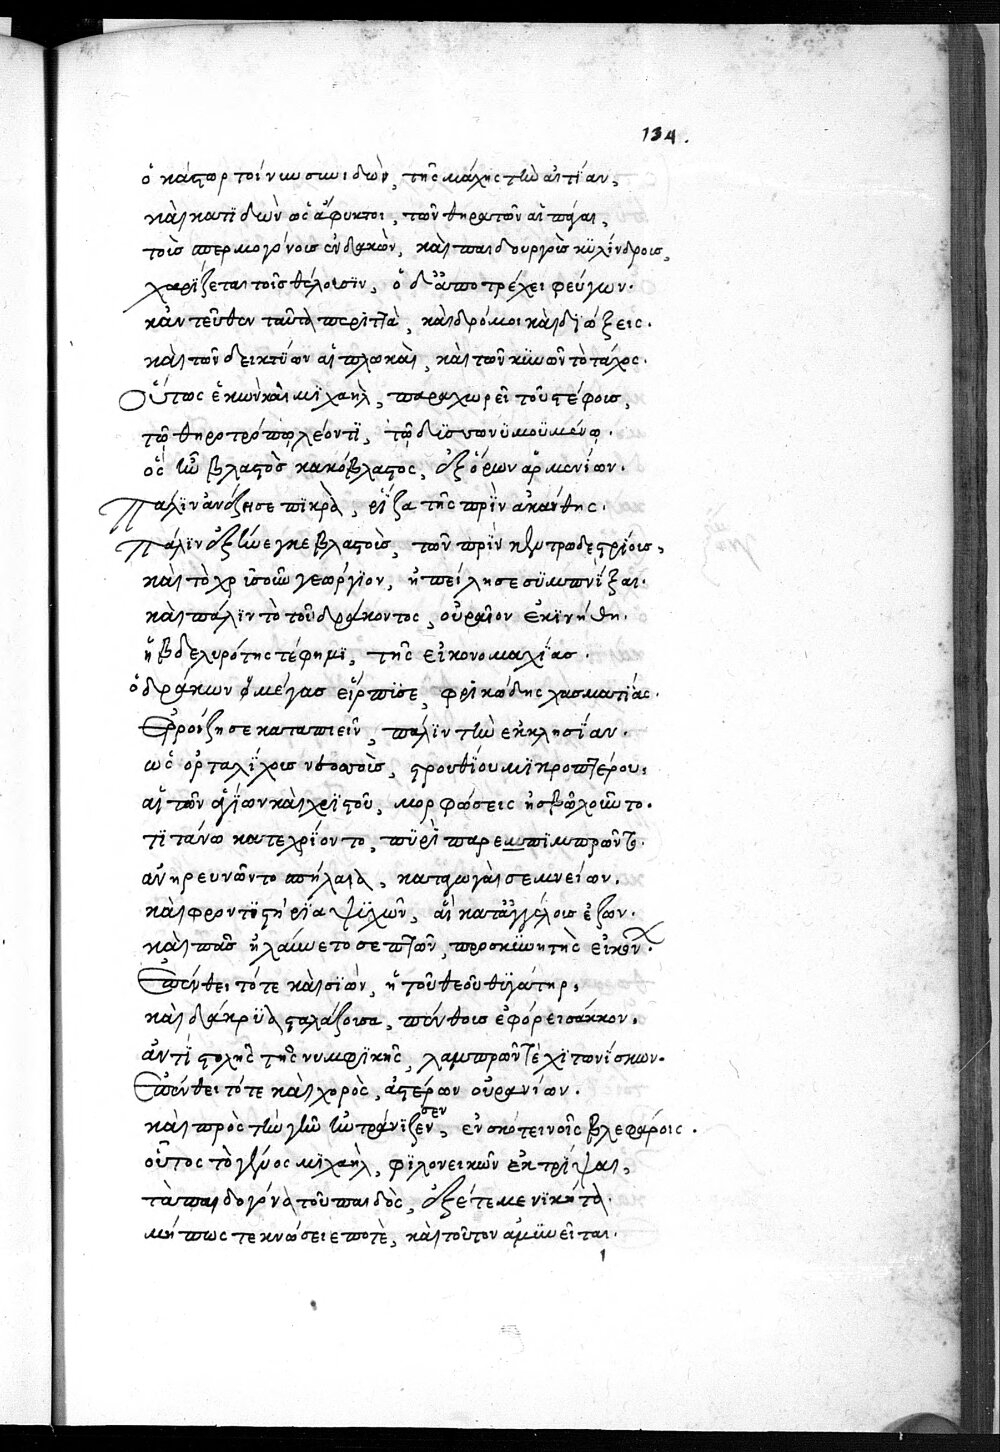 134.
ὁ κάστωρ τοίνυν συνιδὼν, τῆς μάχης τὴν αἰτίαν,
καὶ κατιδὼν ὡς ἄφυκτοι, τῶν θηρατῶν αἱ πάγαι,
τοὺς σπερμογόνους ἐνδακὼν, καὶ παιδουργοὺς κυλίνδρους,
χαρίζεται τοῖς θέλουσιν, ὁ δ' ἀποτρέχει φεύγων.
κἀντεῦθεν ταῦτα περιττὰ, καὶ δρόμοι καὶ διώξεις.
καὶ τῶν δεικτύων αἱ πλοκαὶ, καὶ τῶν κυνῶν τὸ τάχος.
Οὕτως ἑκὼν καὶ μιχαὴλ, παραχωρεῖ τοῦ στέφους,
τῷ θηροτρόπῳ λέοντι, τῷ δυσωνυμουμένῳ.
ὃς ἦν βλαστὸς κακόβλαστος, ἐξ ὅρων ἀρμενίων.
Πάλιν ἀνώζησε πικρὰ, ῥίζα τῆς πρὶν ἀκάνθης.
Πάλιν ἐξήνεγκε βλαστοὺς, τῶν πρὶν
καὶ τὸ χριστοῦ γεώργιον, ἠπείλησε συμπνίξαι.
καὶ πάλιν τὸ τοῦ δράκοντος, οὐραῖον ἐκινήθη.
ἡ βδελυρότης τέ φημι, τῆς εἰκονομαχίας.
ὁ δράκων ὁ μέγας εἵρπισε, φρικώδης χασματίας.
Ἐρρούζησε καταπιεῖν, πάλιν τὴν ἐκκλησίαν.
ὡς ὀρταλίχους νεοσσοὺς, στρουθίου μικροπτέρου,
αἱ τῶν ἁγίων καὶ χριστοῦ, μορφώσεις ἠσβολοῦντο.
τιτάνῳ κατεχρίοντο, πυρὶ παρεμπιμπρῶντο.
ἀνηρευνῶντο σπήλαια, καταγωγαὶ σεμνείων.
καὶ φροντιστήρια ψυχῶν, αἳ κατ' ἀγγέλους ἔζων.
καὶ πᾶς ἠλαύνετο σεπτῶν, προσκυνητὴς εἰκόνων.
Ἐπένθει τότε καὶ σιὼν, ἡ τοῦ θεοῦ θυγάτηρ,
καὶ δάκρυα σταλάζουσα, πένθους ἐφόρει σάκκον.
ἀντὶ στολῆς τῆς νυμφικῆς, λαμπρῶν τὲ χιτωνίσκων.
Ἐπένθει τότε καὶ χορὸς, ἀστέρων οὐρανίων.
καὶ πρὸς τὴν γῆν ἠτράνιζεν, ἐν σκοτεινοῖς βλεφάροις.
οὗτος τὸ γένος μιχαὴλ, φιλονεικῶν ἐκτρίψαι,
τὰ παιδογόνα τοῦ παιδὸς, ἐξέτεμε νικήτα.
μήπως τεκνώσειε ποτὲ, καὶ τοῦτον ἀμυνεῖται.